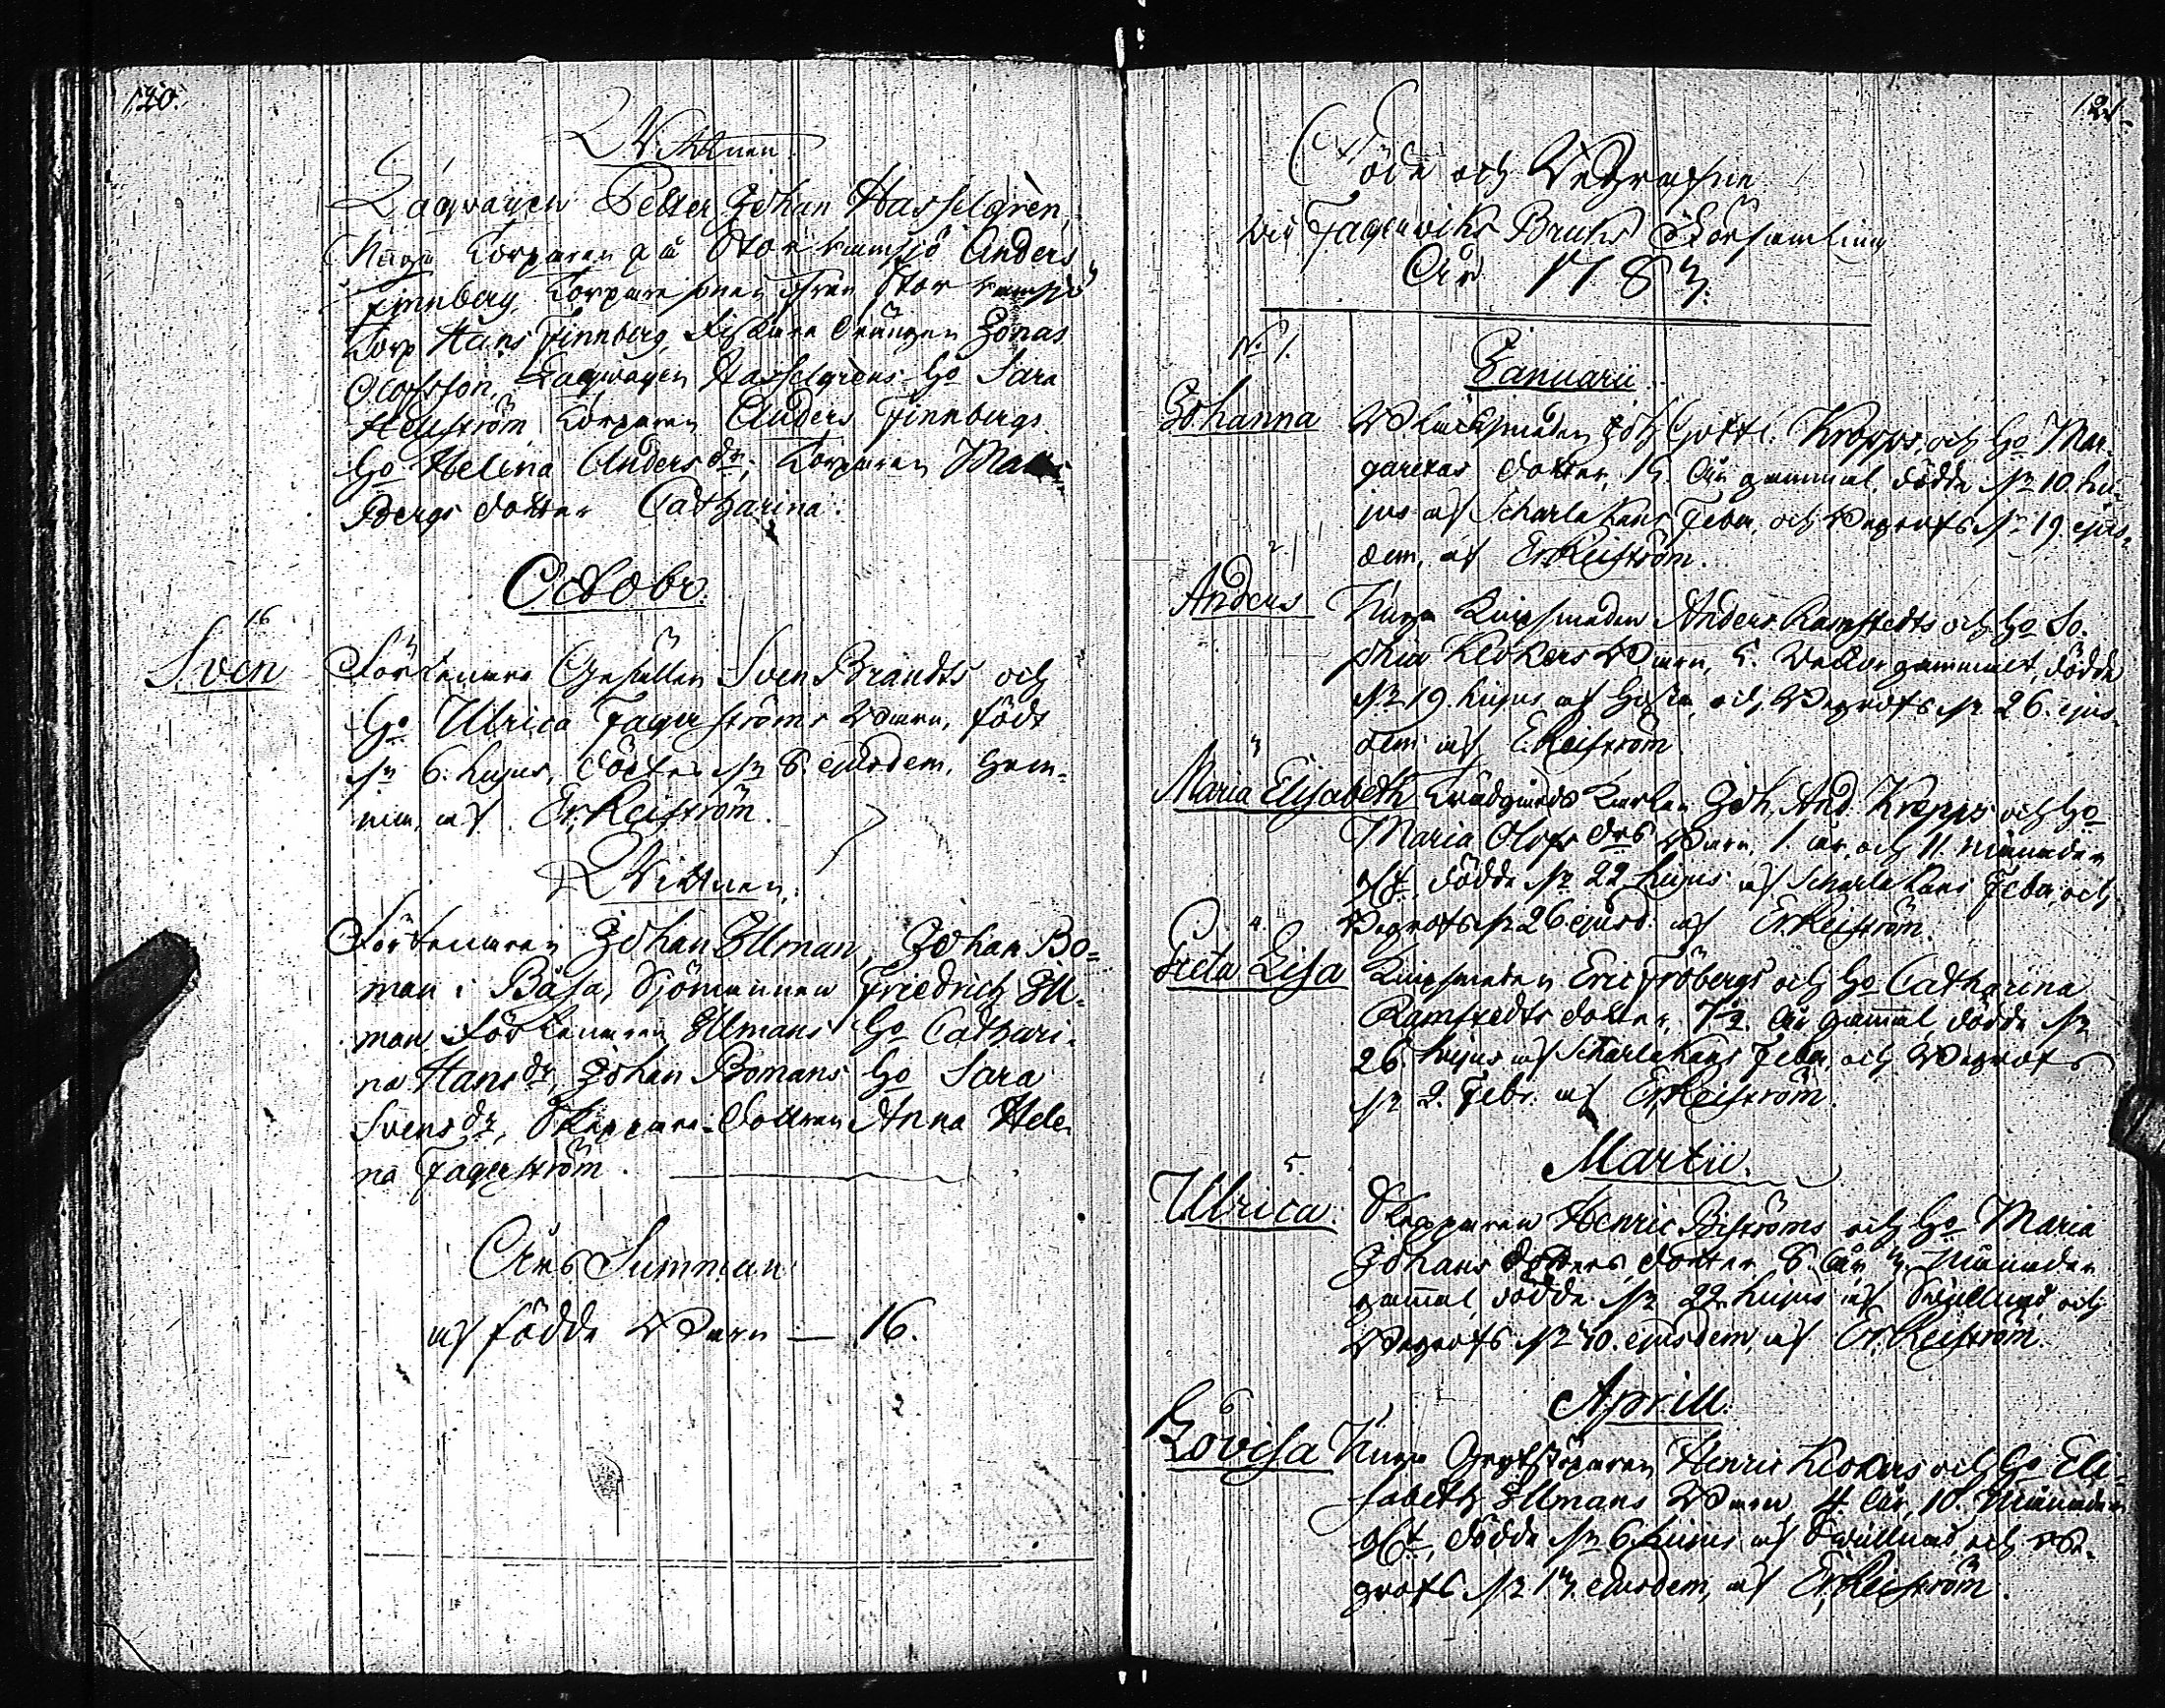 120.
Wittnen.
Lagwagen Petter Johan Hasselgrèn,
Unga Torparen på Stor Ramsjö Anders
Finnberg, Torpare sonen ifrån Stor Ramsjö
Torp Hans Finnberg, Fiskare Drängen Jonas
Olofsson, Lagwagen Hasselgrens Ho Sara
Hellström Torparen Anders Finnbergs
Ho Helena Anders dr, Torparen
Bergs Dotter Catharina.
Octobr.
16
Sven
Förtenare Gesällen Sven Brandts och
Ho Ulrica Fagerströms Barn, född
d. 6. hujus, Döptes d. 8. ejusdem, hem-
ma, af Er. Reiström.
Wittnen.
Förtenaren Johan Illman, Johan Bo-
man i Båsa, Sjömannen Friedrich Ill-
man Förtenaren Illmans Ho Cathari-
na Hans dr, Johan Bomans Ho Sara
Svens dr, Skeppare-Dottren Anna Hele-
na Fagerström.
Års Summan
af födde Barn — 16.
121.
Döde och Begrafne
wid Fagerwiks Bruks Församling
År 1783.
No 1.
Januarii
Johanna
Klensmeden Joh. Gottl. Kropps, och Ho Mar-
garetas Dotter, 15. År gammal, dödde d. 10. hu-
jus af Scharlakans Feber, och Begrofs d. 19. ejus-
dem, af Er. Reiström.
2
Anders
Unga Knipsmeden Anders Ramstedts och Ho So-
phia Klokars Barn, 5. Weckor gammalt, dödde
d. 19. hujus af Hosta, och Begrofs d. 26. ejus-
dem af E. Reiström
3
Maria Elisabeth
Trädgårds Karlen Joh. And. Kropps och Ho
Maria Olofs drs Barn, 1. år, och 11. månader
glt, dödde d. 22 hujus af Scharlakans Feber, och
Begrofs d. 26 ejusd. af Er. Reiström.
4.
Greta Lisa
Knipsmeden Eric Fröbergs och Ho Catharina
Ramstedts Dotter, 7½ År gammal, dödde d.
26. hujus af Scharlakans Feber, och Begrofs
d. 2. Febr. af Er. Reiström.
Martii.
5.
Ulrica.
Skepparen Henric Biströms och Ho Maria
Johans Dotters, Dotter 8. År 3. Månader
gammal, dödde d. 22 hujus af Swullnad, och
Begrofs d. 30. ejusdem, af Er. Reiström.
Aprill.
6
Lovisa
Unga Grytstöparen Henric Klokars och Ho Eli-
sabeth Illmans Barn 4 År, 10. Månader
glt, dödde d. 6 hujus af Swullnad, och Be-
grofs d. 13. ejusdem, af Er. Reiström.